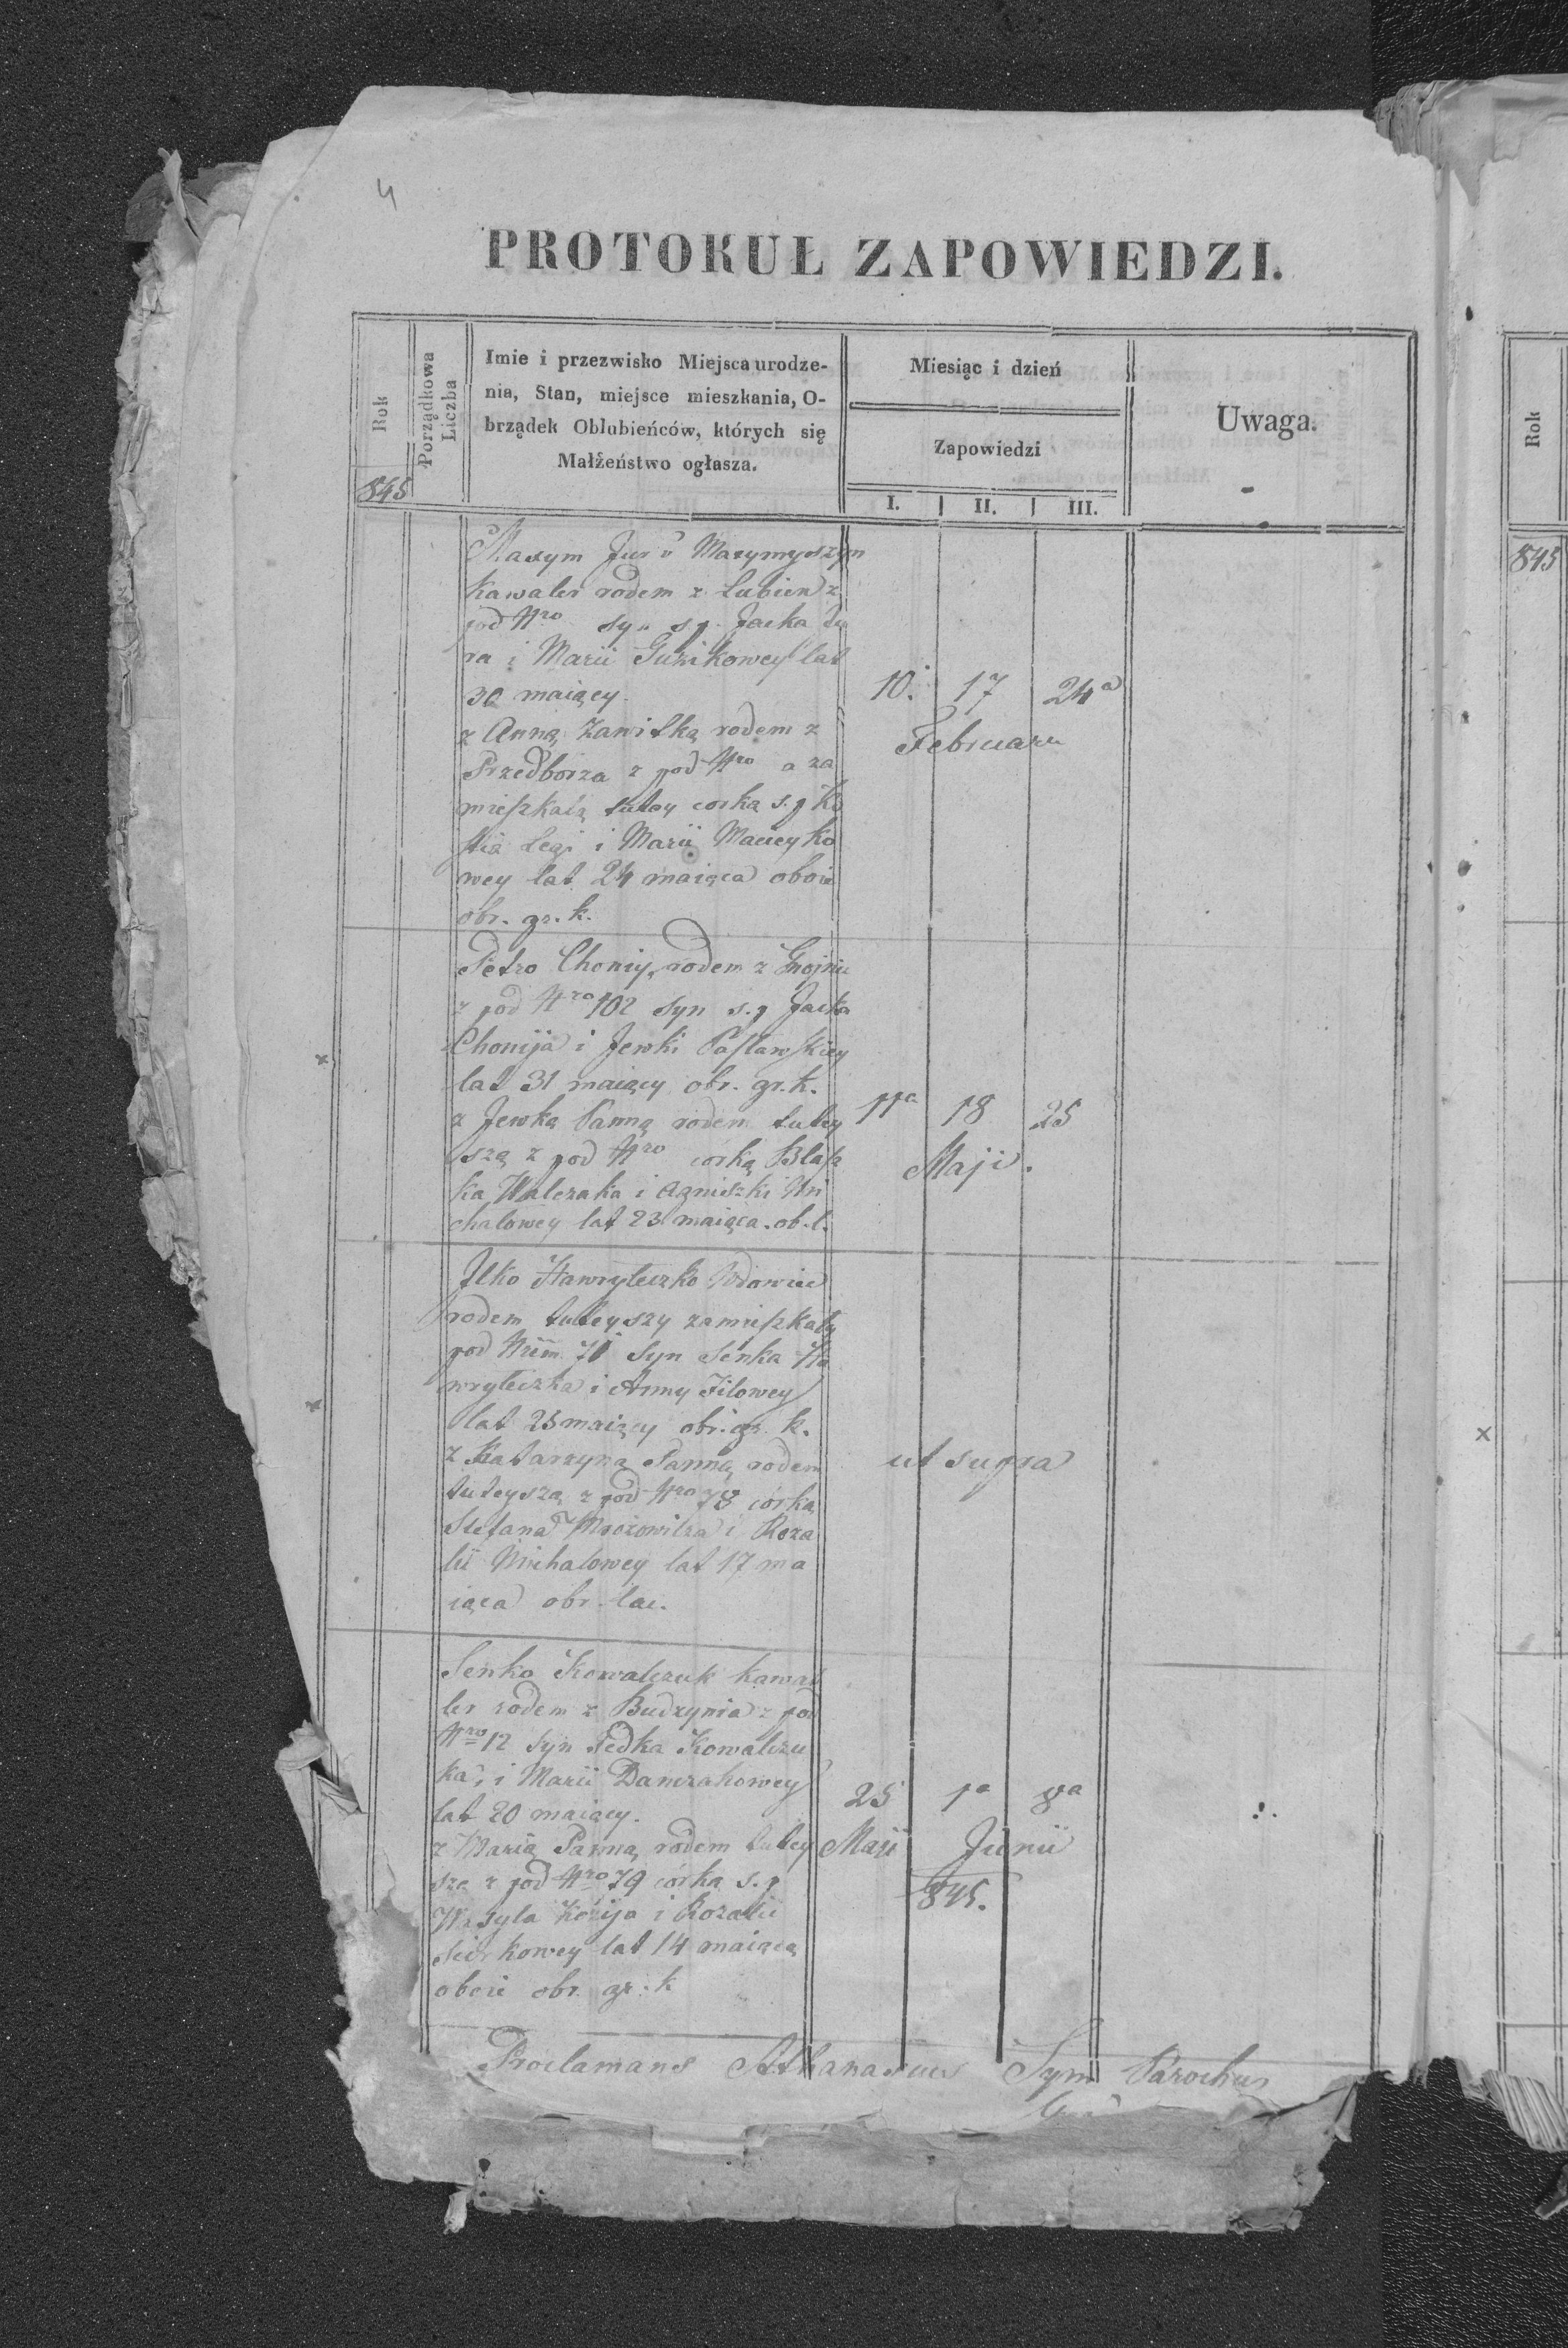 4
PROTOKUŁ ZAPOWIEDZI.
Rok
Porządkowa Liczba
Imie i przezwisko Miejsca urodze-
nia, Stan, miejsce mieszkania, O-
brządek Oblubieńców, których się
Małżeństwo ogłasza.
Miesiąc i dzień
Zapowiedzi
I. II. III.
Uwaga.
845
Maxym Jur
kawaler rodem z Lubien z
pod Nro syn s.p. Jacka Ju
ra i Marii Guzikowey lat
30 maiący.
z Anną Zawitką rodem z
Przedborza z pod Nro a za
mieszkałą tutey corka s.p Ko
stia Legi i Marii Macieyko
wey lat 24 maiąca oboie
obr. gr. k.
10. 17 24a
Februarii
Petro Choniy, rodem z Gnojnic
z pod Nro 102 syn s.p Jacka
Chonija i Jewki Pastawskiey
lat 31 maiący obr. gr. k.
z Jewką Panną rodem tutey
szą z pod Nro córką Błaż
ka Walczaka i Agniszki Mi
chalowey lat 23 maiąca. ob. l.
11a 18 25
Maji.
Ilko Hawryleczko Wdowiec
rodem tuteyszy zamieszkały
pod Nrem 71 syn Senka Ha
wryleczka i Anny Filowey
lat 23 maiący obr. gr. k.
z Katarzyną Panną rodem
tuteyszą z pod Nro 78 córką
Stefana Mrozowicza i Roza
lii Michalowey lat 17 ma
iąca obr. łac.
ut supra
Senko Kowalczuk kawa
ler rodem z Budzynia z pod
Nro 12 syn Fedka Kowalczu
ka, i Marii Danczakowey
lat 20 maiący.
z Marią Panną rodem tutey
szą z pod Nro 79 córka s.p
Wasyla Kozija i Rozalii
Sidorkowey lat 14 maiącą
oboie obr. gr. k
25 1a 8a
Maji Junii
845.
Proclamans Athanasius Sym Parochus
Rok
845